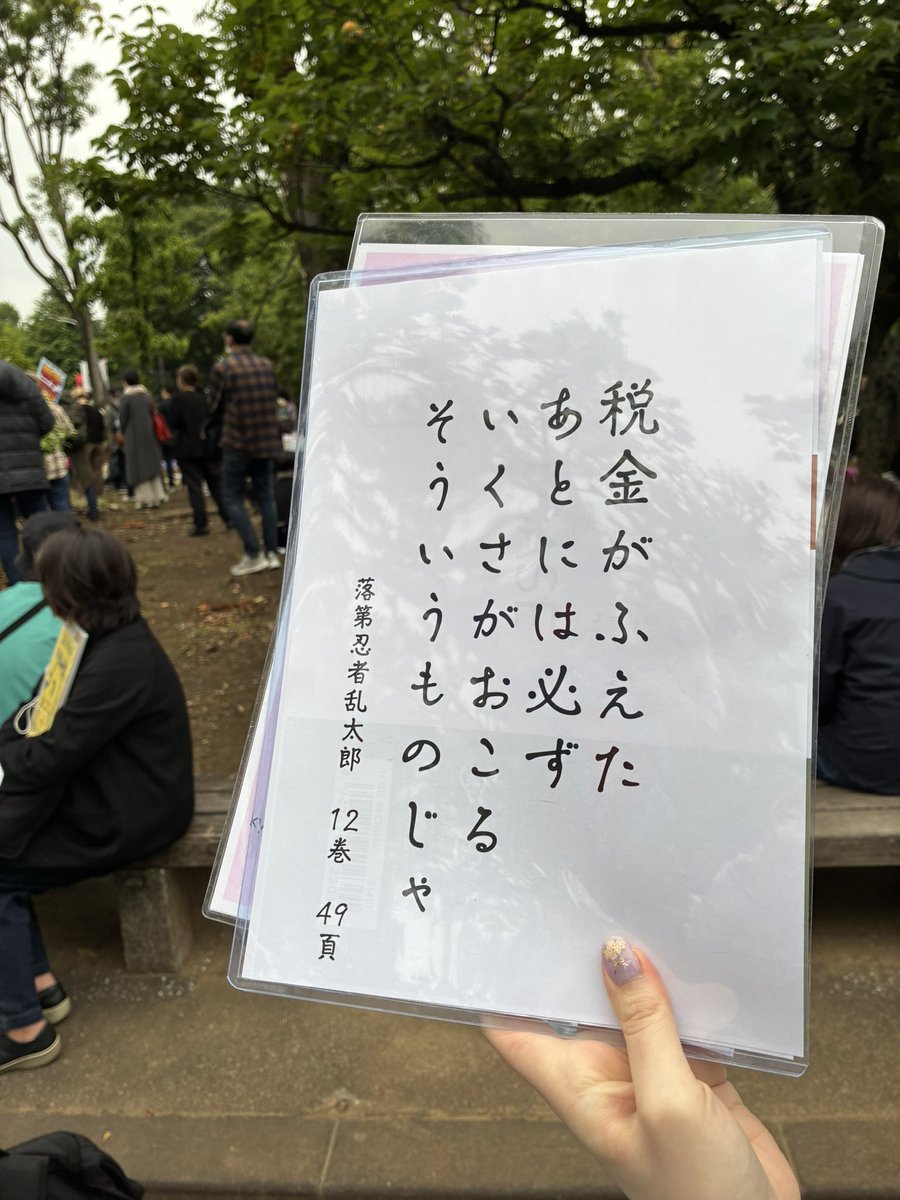 税金がふえた
あとには必ず
いくさがおこる
そういうものじゃ
落第忍者乱太郎 12巻 49頁